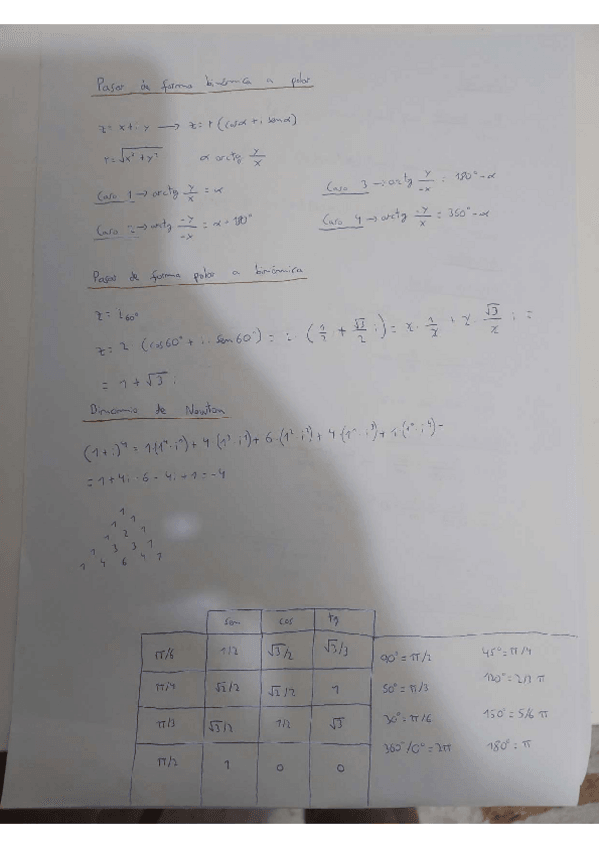 Pasar de forma binómica a polar
z = x + i · y → z = r (cos α + i senα)
r = √x² + y²   α arctg y/x
Caso 1 → arctg y/x = α   Caso 3 → arctg y/-x = 180° - α
Caso 2 → arctg -y/-x = α - 180°   Caso 4 → arctg -y/x = 360° - α
Pasar de forma polar a binómica
z = 2 60°
z = 2 · (cos60° + i · sen60°) = 2 · (1/2 + √3/2 i) = 2 · 1/2 + 2 · √3/2 i =
= 1 + √3 i
Binomio de Newton
(1 + i)⁴ = 1 · (1⁴ · i⁰) + 4 · (1³ · i¹) + 6 · (1² · i²) + 4 · (1¹ · i³) + 1 · (1⁰ · i⁴) =
= 1 + 4i - 6 - 4i + 1 = -4
1
1 1
1 2 1
1 3 3 1
1 4 6 4 1
sen cos tg
π/6 1/2 √3/2 √3/3
π/4 √2/2 √2/2 1
π/3 √3/2 1/2 √3
π/2 1 0 0
90° = π/2   45° = π/4
120° = 2/3 π
30° = π/6   150° = 5/6 π
360°/0° = 2π   180° = π